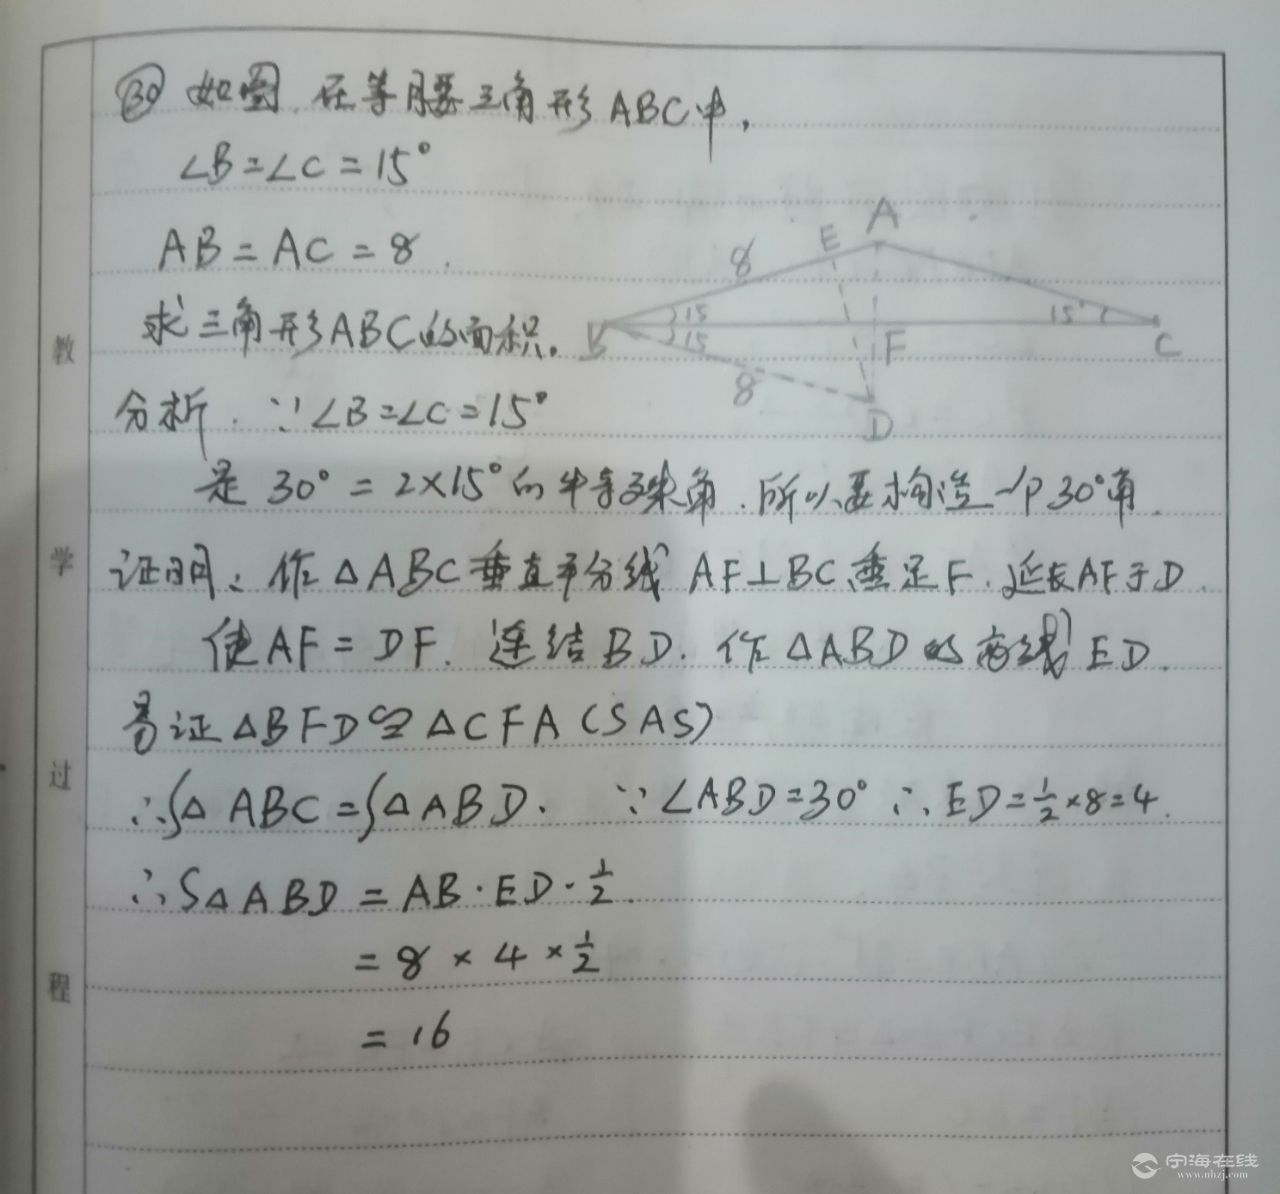 ㉚ 如图,在等腰三角形ABC中,
∠B=∠C=15°
AB=AC=8.
求三角形ABC的面积。
A
E
8
15
15
15°
B
F
C
8
D
分析.∵∠B=∠C=15°
是30°=2×15°的半特殊角.所以要构造一个30°角.
证明:作△ABC垂直平分线AF⊥BC,垂足F.延长AF于D.
使AF=DF.连结BD.作△ABD的高线ED.
易证△BFD≌△CFA(SAS)
∴S△ABC=S△ABD. ∵∠ABD=30°∴ED=1/2×8=4.
∴S△ABD=AB·ED·1/2.
=8×4×1/2
=16
教
学
过
程
宁海在线
www.nhzj.com